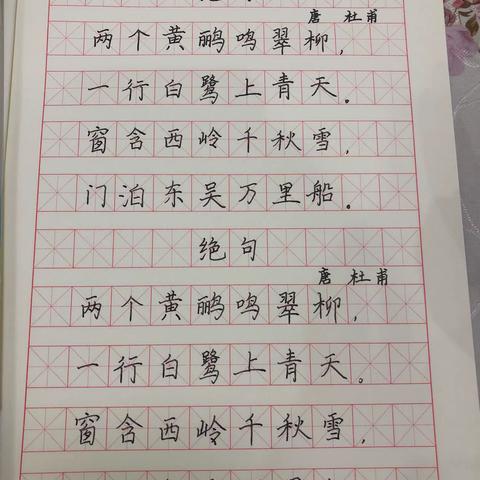 唐 杜甫
两个黄鹂鸣翠柳，
一行白鹭上青天。
窗含西岭千秋雪，
门泊东吴万里船。
绝句
唐 杜甫
两个黄鹂鸣翠柳，
一行白鹭上青天。
窗含西岭千秋雪，